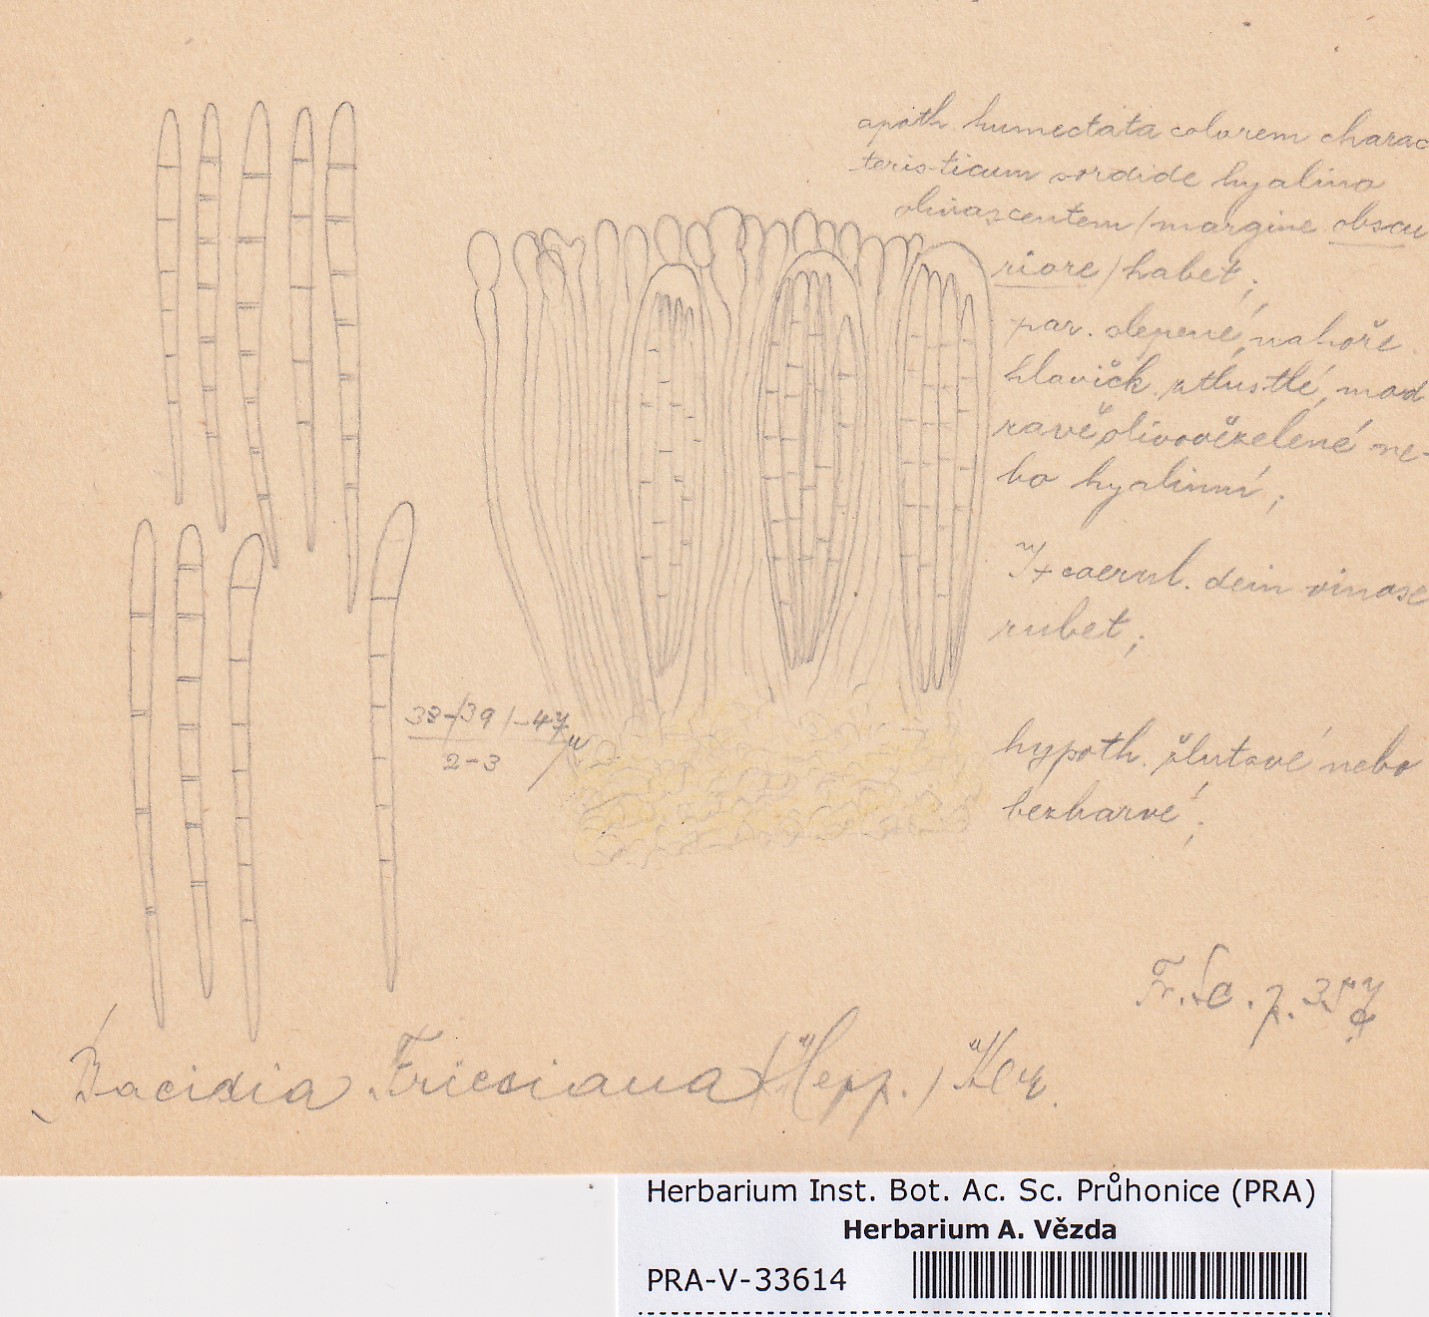 apoth. humectata colorem charac
teristicum sordide hyalino
olivascentem (margine obscu
riore) habet;
par. slepené, nahoře
hlavičk. ztlustlé, mod
ravě olivově zelené ne-
bo hyalinní;
J+ caerul. dein vinose
rubet;
38-39 (-47
2-3 μ
hypoth. žlutavé nebo
bezbarvé;
Fr. Sc. p. 357
Bacidia Friesiana (Hepp.) Kbr.
Herbarium Inst. Bot. Ac. Sc. Průhonice (PRA)
Herbarium A. Vězda
PRA-V-33614